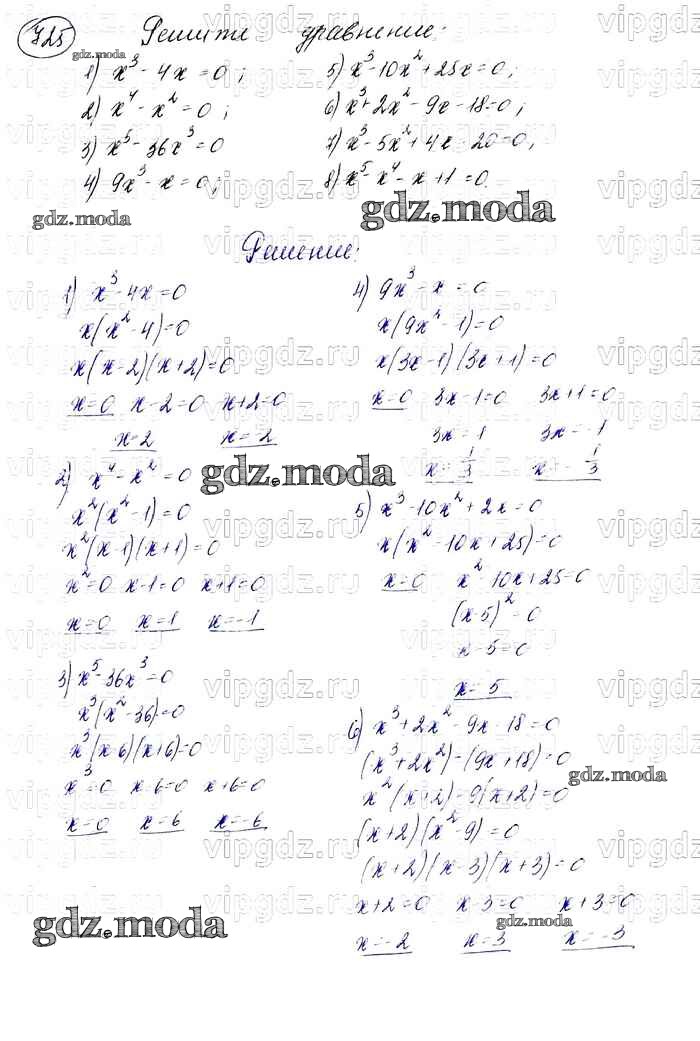 725 Решите уравнение:
1) x³ - 4x = 0;
2) x⁴ - x² = 0;
3) x⁵ - 36x³ = 0
4) 9x³ - x = 0;
5) x³ - 10x² + 25x = 0;
6) x³ + 2x² - 9x - 18 = 0;
7) x³ - 5x² + 4x - 20 = 0;
8) x⁵ - x⁴ - x + 1 = 0
gdz.moda
gdz.moda
Решение:
1) x³ - 4x = 0
x(x² - 4) = 0
x(x-2)(x+2) = 0
x=0 x-2=0 x+2=0
x=2 x=-2
2) x⁴ - x² = 0
x²(x² - 1) = 0
x²(x-1)(x+1) = 0
x²=0 x-1=0 x+1=0
x=0 x=1 x=-1
3) x⁵ - 36x³ = 0
x³(x² - 36) = 0
x³(x-6)(x+6) = 0
x³=0 x-6=0 x+6=0
x=0 x=6 x=-6
gdz.moda
4) 9x³ - x = 0
x(9x² - 1) = 0
x(3x-1)(3x+1) = 0
x=0 3x-1=0 3x+1=0
3x=1 3x=-1
x=1/3 x=-1/3
gdz.moda
5) x³ - 10x² + 2x = 0
x(x² - 10x + 25) = 0
x=0 x² - 10x + 25 = 0
(x-5)² = 0
x-5=0
x=5
6) x³ + 2x² - 9x - 18 = 0
(x³ + 2x²) - (9x + 18) = 0
gdz.moda
x²(x+2) - 9(x+2) = 0
(x+2)(x² - 9) = 0
(x+2)(x-3)(x+3) = 0
x+2=0 x-3=0 x+3=0
gdz.moda
x=-2 x=3 x=-3
vipgdz.ru